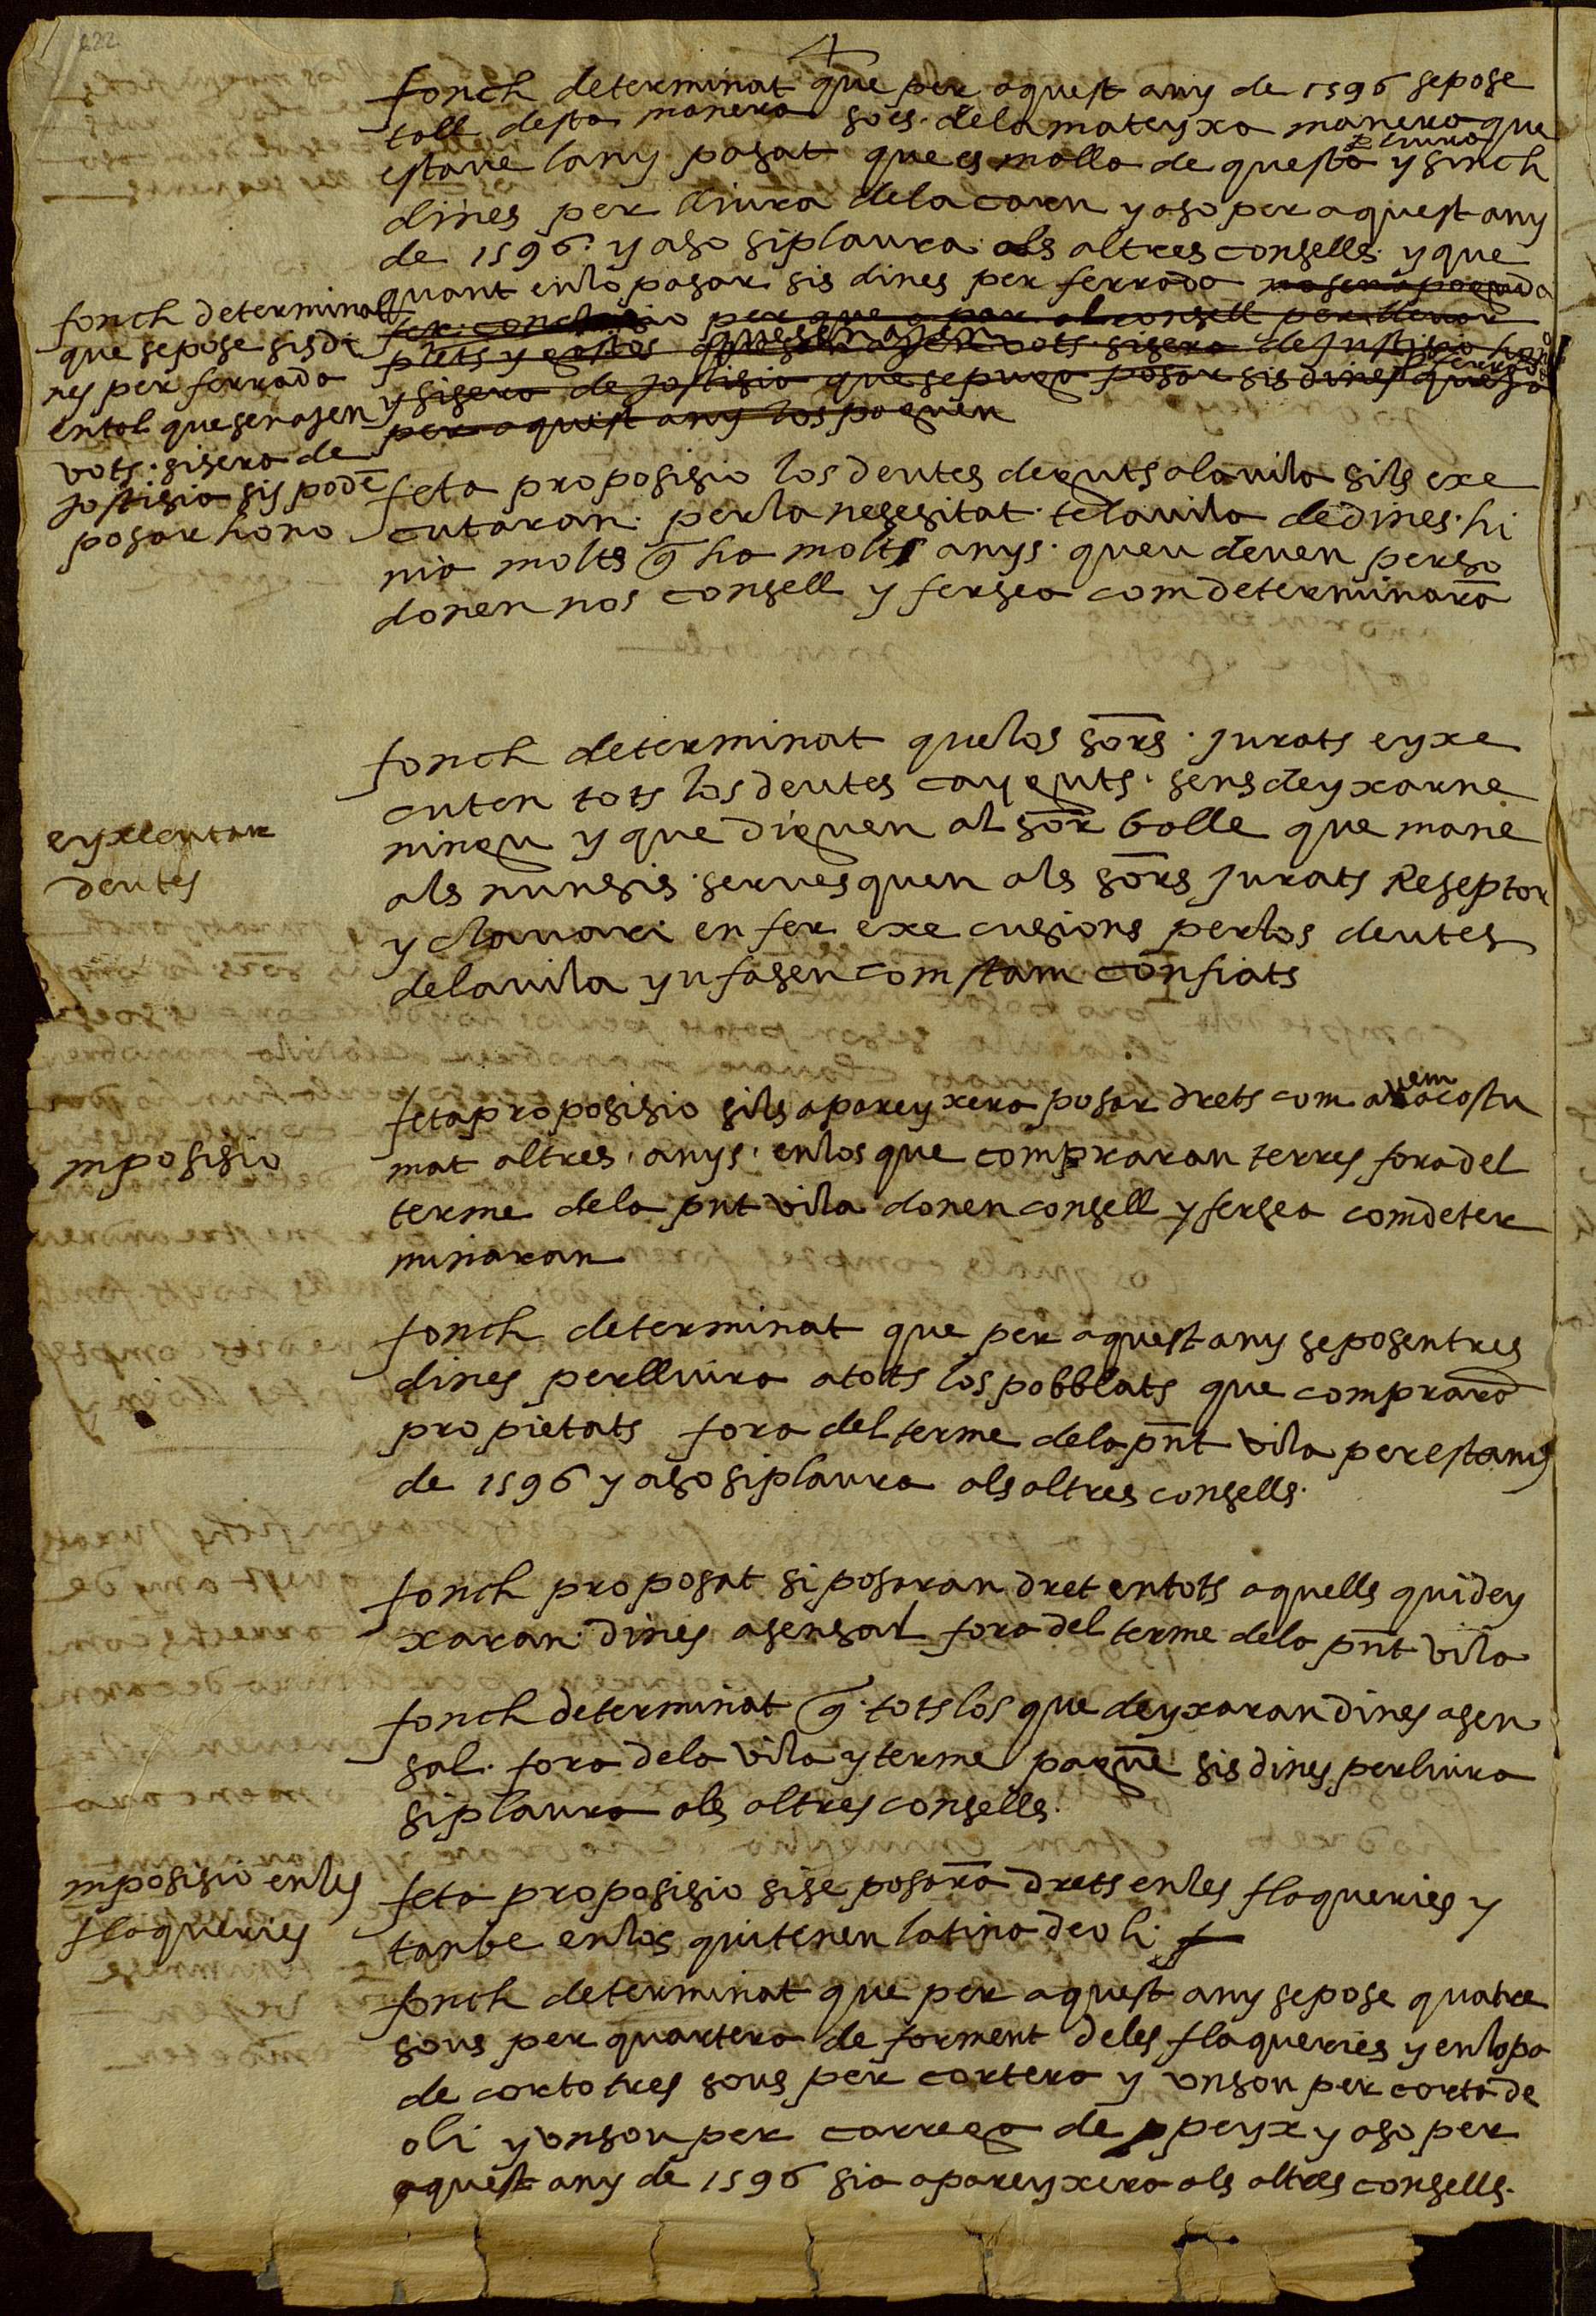 622
fonch determinat que per aquest any de 1596 sepose
tall desta manera soes. dela mateyxa manera que
estave lany pasat que es malla de questa ꝑ liura y sinch
dines per lliura dela carn y aso per aquest any
de 1596. y aso siplaura als altres consells. y que
quant enlo pasar sis dines per ferrada
per que a par al consell per llevar
plets y gastos que sen ajen vots. sisera de justisia
y sisera de jostisia que sepuga posar sis dines
per aquest any los paguen
fonch determinat
que sepose sis di
nes per ferrada
entol que sen ajen
vots. sisera de
jostisia sis podē
posar hono
feta proposisio los deutes deguts alavila sils exe
cutaran. per la nesesitat. telavila dedines. hi
nia molts q̄ ha molts anys. queu deven perso
donen nos consell y fersea com determinarā
fonch determinat quelos sōrs. jurats eyxe
cuten tots los deutes cayguts. sens deyxarne
ningu y que diguen al sōr balle que mane
als nunsis. servesquen als sōrs jurats Reseptor
y clavari en fer exe cusions perlos deutes
delavila yu fasen com stam confiats
eyxecutar
deutes
feta proposisio sils apareyxera posar drets com avem acostu
mat altres. anys. enlos que compraran terres foradel
terme dela pnt vila donen consell y fersea comdeter
minaran
mposisio
fonch determinat que per aquest any seposentres
dines perlliura atots los pobblats que comprarā
propietats fora del terme dela pn̄t vila perestany
de 1596 y aso siplaura als altres consells.
fonch proposat si posaran dret entots aquells quidey
xaran. dines asensal fora del terme dela pn̄t vila
fonch determinat q̄. tots los que deyxaran dines asen
sal. fora dela vila y terme paguē sis dines perliura
siplaura als altres consells.
mposisio enles
flaqueries
feta proposisio sise posarā drets enles flaqueries y
tanbe enlos quitenen latina deoli
fonch determinat que per aquest any sepose quatre
sous per quartera de forment deles flaqueries y enlopa
de corto tres sous per cortera y vnsou per corta de
oli y vnsou per carrega de peyx y aso per
aquest any de 1596 sia apareyxera als altres consells.